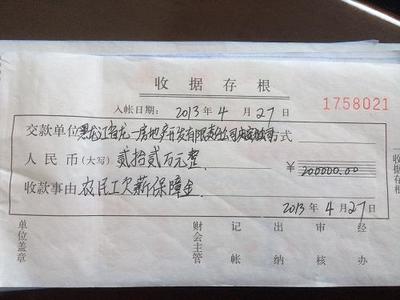 收据存根
入帐日期: 2013年4月27日 1758021
交款单位 黑龙江省龙一房地产开发有限责任公司 式
人民币(大写) 贰拾贰万元整 ¥200000.00
收款事由 农民工欠薪保障金
2013年4月27日
单位盖章 财会主管 记帐 出纳 审核 经办
收据存根